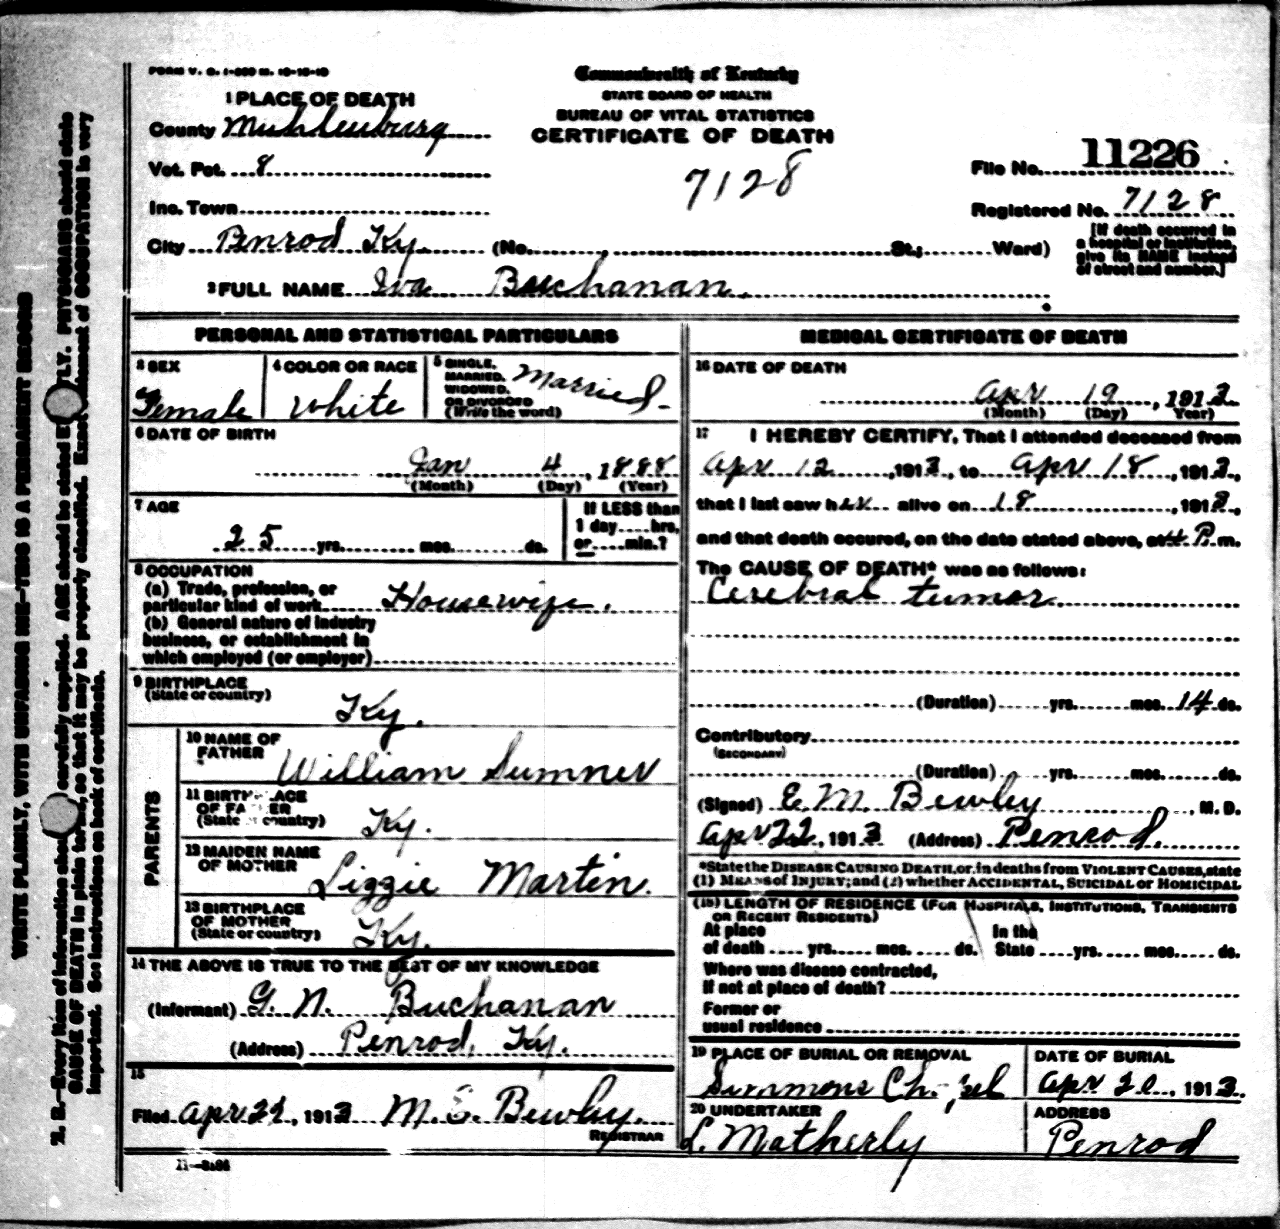 FORM V. S. 1-
Commonwealth of Kentucky
STATE BOARD OF HEALTH
BUREAU OF VITAL STATISTICS
CERTIFICATE OF DEATH
1 PLACE OF DEATH
County Muhlenburg
Vot. Pct. 8
Inc. Town
City Penrod Ky. (No. , St.; Ward)
7128
File No. 11226
Registered No. 7128
[If death occurred in
a hospital or institution,
give its NAME instead
of street and number.]
2 FULL NAME Iva Buchanan.
PERSONAL AND STATISTICAL PARTICULARS
3 SEX
Female
4 COLOR OR RACE
White
5 SINGLE,
MARRIED,
WIDOWED,
OR DIVORCED
(Write the word)
Married
6 DATE OF BIRTH
Jan 4, 1888
(Month) (Day) (Year)
7 AGE
25 yrs. mos. ds.
If LESS than
1 day hrs.
or min.?
8 OCCUPATION
(a) Trade, profession, or
particular kind of work Housewife.
(b) General nature of industry
business, or establishment in
which employed (or employer)
9 BIRTHPLACE
(State or country)
Ky.
PARENTS
10 NAME OF
FATHER
William Sumner
11 BIRTHPLACE
OF FATHER
(State or country)
Ky.
12 MAIDEN NAME
OF MOTHER
Lizzie Martin.
13 BIRTHPLACE
OF MOTHER
(State or country)
Ky.
14 THE ABOVE IS TRUE TO THE BEST OF MY KNOWLEDGE
(Informant) G. N. Buchanan
(Address) Penrod, Ky.
15
Filed Apr 22, 1913 M. E. Bewley.
REGISTRAR
11-
MEDICAL CERTIFICATE OF DEATH
16 DATE OF DEATH
Apr 19, 1913
(Month) (Day) (Year)
17 I HEREBY CERTIFY, That I attended deceased from
Apr 12, 1913, to Apr 18, 1913,
that I last saw her alive on 18, 1913,
and that death occured, on the date stated above, at 4 P. m.
The CAUSE OF DEATH* was as follows:
Cerebral tumor
(Duration) yrs. mos. 14 ds.
Contributory
(SECONDARY)
(Duration) yrs. mos. ds.
(Signed) E. M. Bewley, M. D.
Apr 22, 1913 (Address) Penrod.
*State the DISEASE CAUSING DEATH, or, in deaths from VIOLENT CAUSES, state
(1) MEANS of INJURY; and (2) whether ACCIDENTAL, SUICIDAL or HOMICIDAL
(18) LENGTH OF RESIDENCE (FOR HOSPITALS, INSTITUTIONS, TRANSIENTS
OR RECENT RESIDENTS)
At place In the
of death yrs. mos. ds. State yrs. mos. ds.
Where was disease contracted,
if not at place of death?
Former or
usual residence
19 PLACE OF BURIAL OR REMOVAL
Simmons Chapel
DATE OF BURIAL
Apr 20, 1913
20 UNDERTAKER
L. Matherly
ADDRESS
Penrod
WRITE PLAINLY, WITH UNFADING INK—THIS IS A PERMANENT RECORD
N. B.—Every item of information should be carefully supplied. AGE should be stated EXACTLY. PHYSICIANS should state
CAUSE OF DEATH in plain terms, so that it may be properly classified. Exact statement of OCCUPATION is very
important. See instructions on back of certificate.